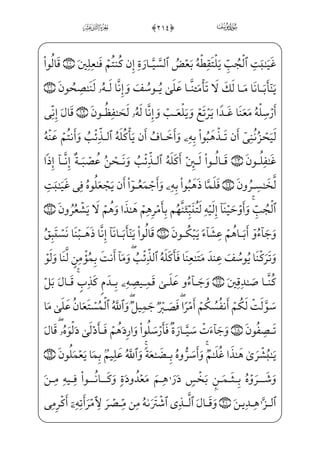 سُورَةُ يُوسُفَ ﴿٢١٤﴾ الجُزْءُ الثَّانِي عَشَرَ
غَيَٰبَتِ ٱلْجُبِّ يَلْتَقِطْهُ بَعْضُ ٱلسَّيَّارَةِ إِن كُنتُمْ فَٰعِلِينَ ١٠ قَالُوا۟
يَٰٓأَبَانَا مَا لَكَ لَا تَأْمَ۫نَّا عَلَىٰ يُوسُفَ وَإِنَّا لَهُۥ لَنَٰصِحُونَ ١١
أَرْسِلْهُ مَعَنَا غَدًا يَرْتَعْ وَيَلْعَبْ وَإِنَّا لَهُۥ لَحَٰفِظُونَ ١٢ قَالَ إِنِّى
لَيَحْزُنُنِىٓ أَن تَذْهَبُوا۟ بِهِۦ وَأَخَافُ أَن يَأْكُلَهُ ٱلذِّئْبُ وَأَنتُمْ عَنْهُ
غَٰفِلُونَ ١٣ قَالُوا۟ لَئِنْ أَكَلَهُ ٱلذِّئْبُ وَنَحْنُ عُصْبَةٌ إِنَّآ إِذًا
لَّخَٰسِرُونَ ١٤ فَلَمَّا ذَهَبُوا۟ بِهِۦ وَأَجْمَعُوٓا۟ أَن يَجْعَلُوهُ فِى غَيَٰبَتِ
ٱلْجُبِّ ۚ وَأَوْحَيْنَآ إِلَيْهِ لَتُنَبِّئَنَّهُم بِأَمْرِهِمْ هَٰذَا وَهُمْ لَا يَشْعُرُونَ ١٥
وَجَآءُوٓ أَبَاهُمْ عِشَآءً يَبْكُونَ ١٦ قَالُوا۟ يَٰٓأَبَانَآ إِنَّا ذَهَبْنَا نَسْتَبِقُ
وَتَرَكْنَا يُوسُفَ عِندَ مَتَٰعِنَا فَأَكَلَهُ ٱلذِّئْبُ ۖ وَمَآ أَنتَ بِمُؤْمِنٍ لَّنَا وَلَوْ
كُنَّا صَٰدِقِينَ ١٧ وَجَآءُو عَلَىٰ قَمِيصِهِۦ بِدَمٍ كَذِبٍ ۚ قَالَ بَلْ
سَوَّلَتْ لَكُمْ أَنفُسُكُمْ أَمْرًا ۖ فَصَبْرٌ جَمِيلٌ ۖ وَٱللَّهُ ٱلْمُسْتَعَانُ عَلَىٰ مَا
تَصِفُونَ ١٨ وَجَآءَتْ سَيَّارَةٌ فَأَرْسَلُوا۟ وَارِدَهُمْ فَأَدْلَىٰ دَلْوَهُۥ ۖ قَالَ
يَٰبُشْرَىٰ هَٰذَا غُلَٰمٌ ۚ وَأَسَرُّوهُ بِضَٰعَةً ۚ وَٱللَّهُ عَلِيمٌۢ بِمَا يَعْمَلُونَ ١٩
وَشَرَوْهُ بِثَمَنٍۭ بَخْسٍ دَرَٰهِمَ مَعْدُودَةٍ وَكَانُوا۟ فِيهِ مِنَ
ٱلزَّٰهِدِينَ ٢٠ وَقَالَ ٱلَّذِى ٱشْتَرَىٰهُ مِن مِّصْرَ لِٱمْرَأَتِهِۦٓ أَكْرِمِى